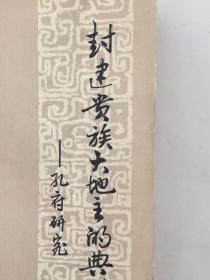 封建贵族大地主的典
——孔府研究